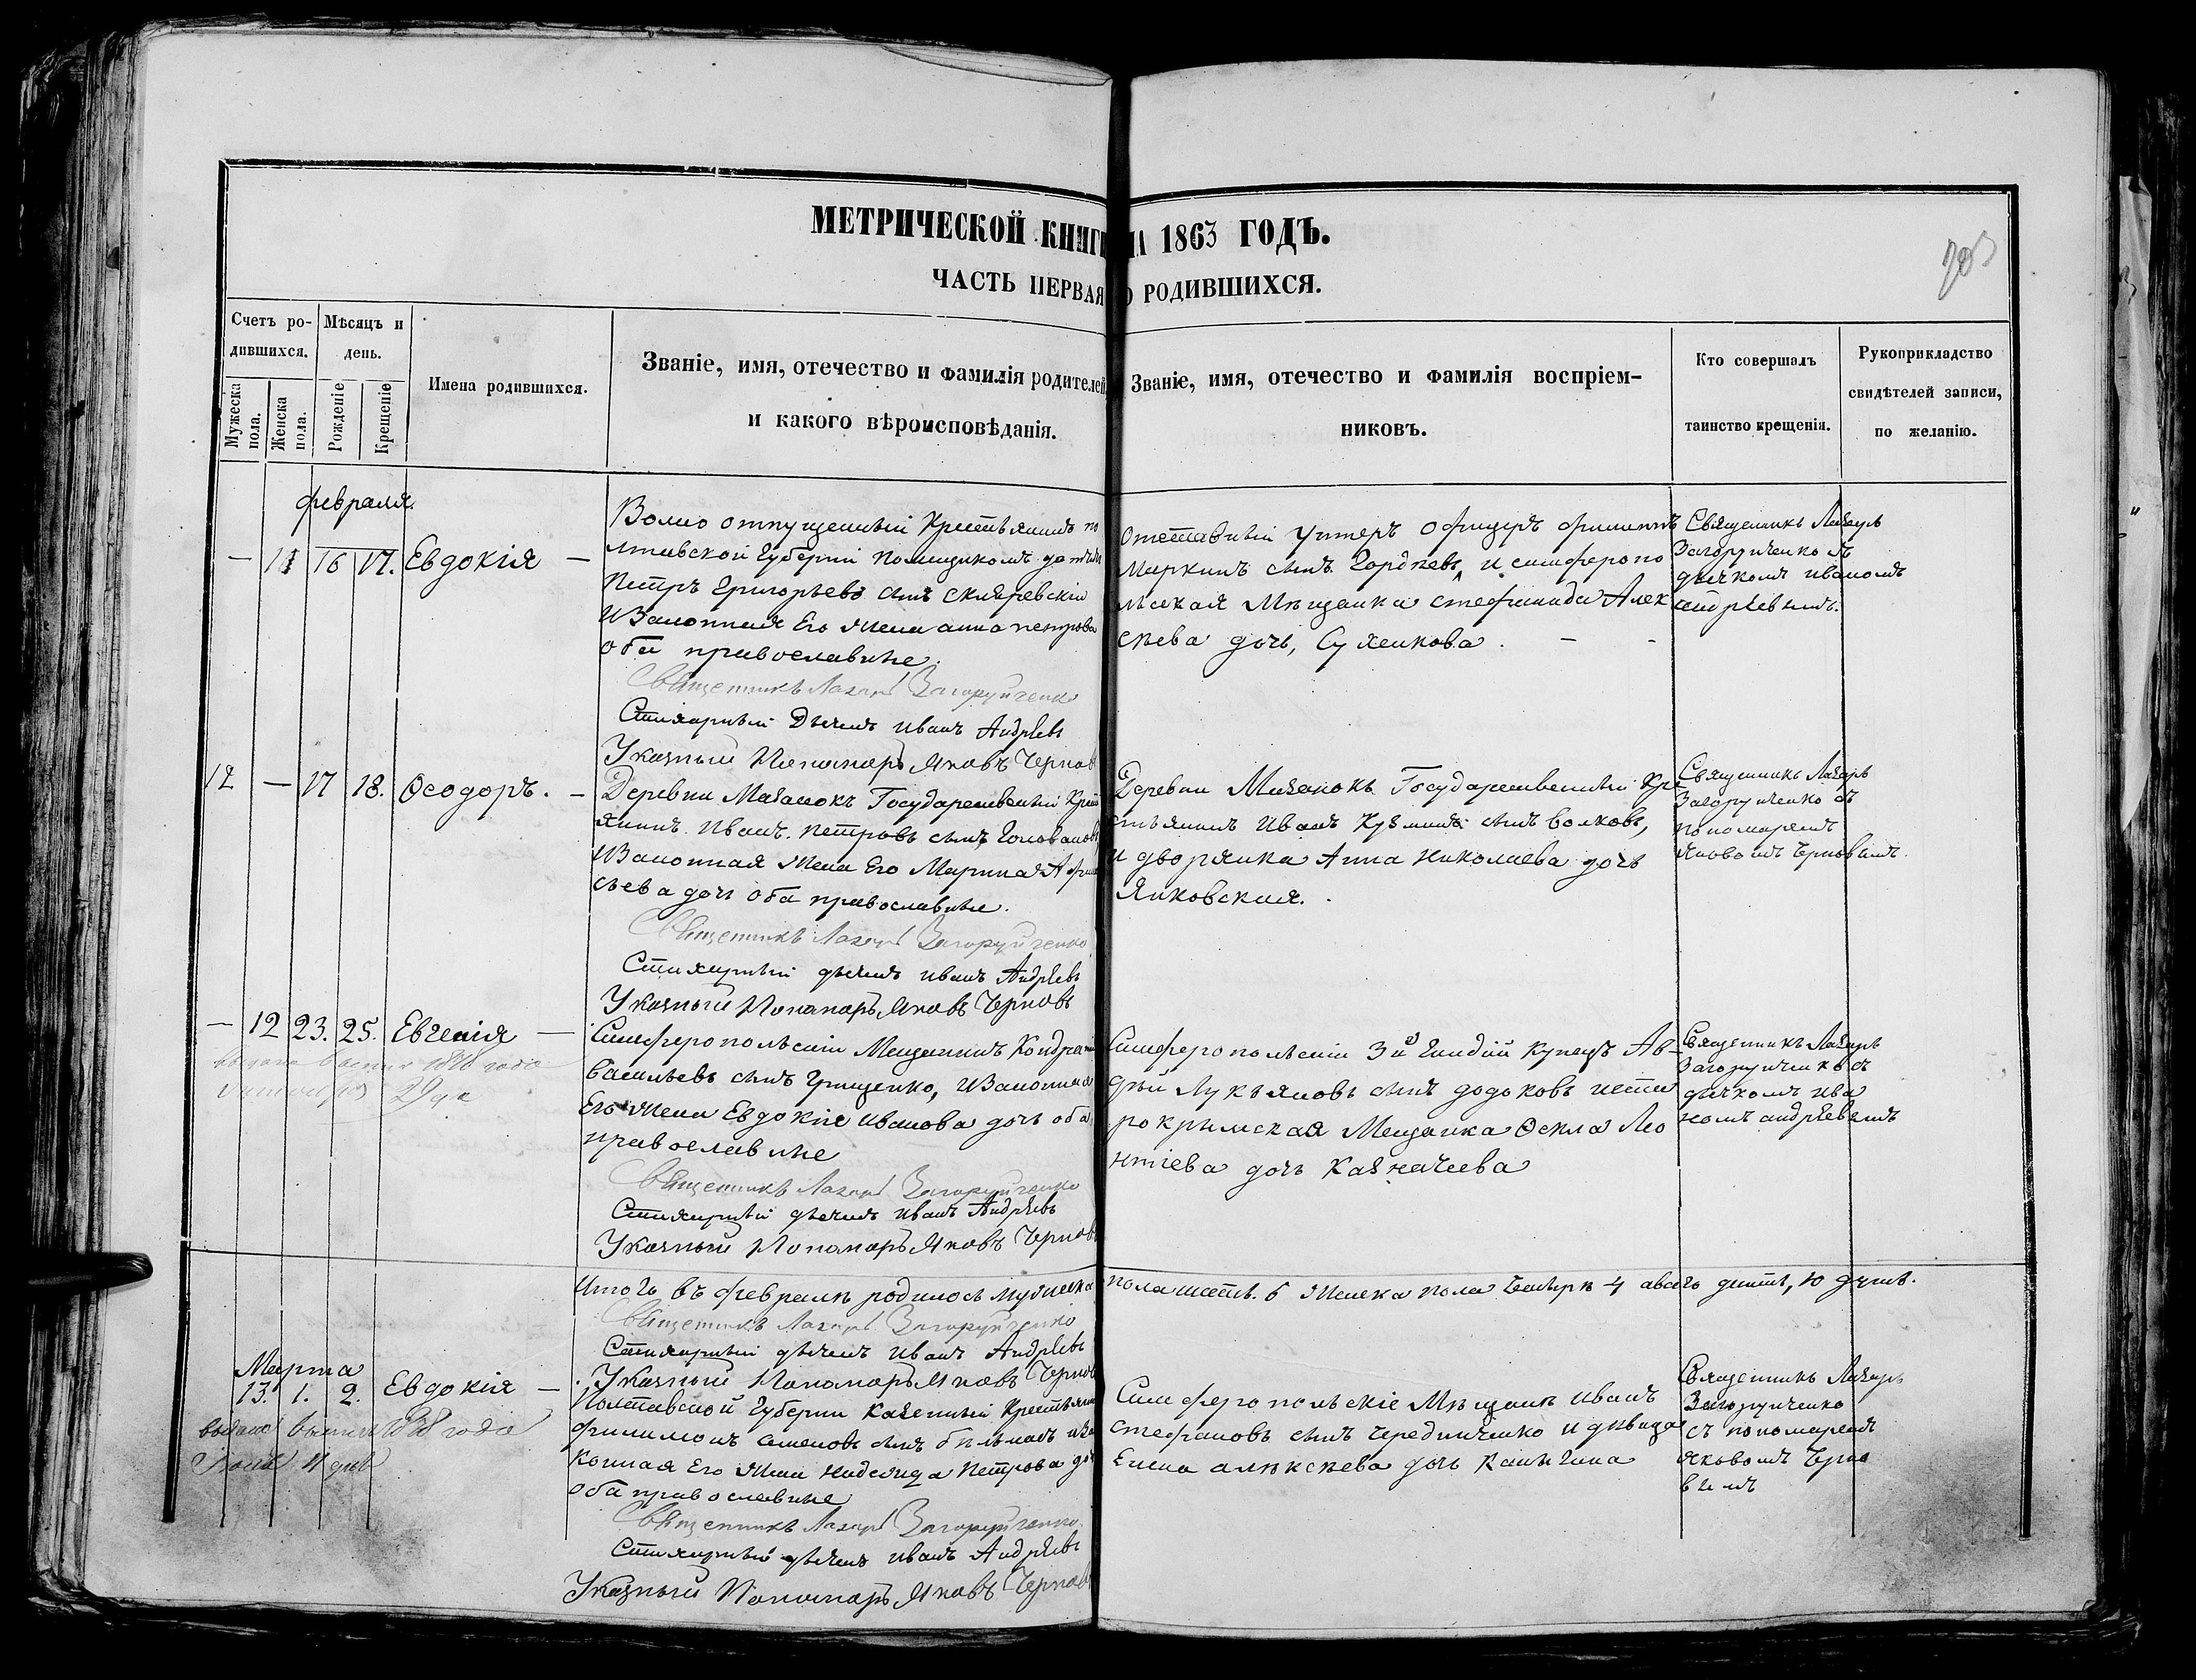 МЕТРИЧЕСКОЙ КНИГИ НА 1863 ГОДЪ.
ЧАСТЬ ПЕРВАЯ О РОДИВШИХСЯ.
203
Счетъ ро-
дившихся.
Мужеска пола.
Женска пола.
Мѣсяцъ и
день.
Рожденіе
Крещеніе
Имена родившихся.
Званіе, имя, отечество и фамилія родителей
и какого вѣроисповѣданія.
Званіе, имя, отечество и фамилія воспріем-
никовъ.
Кто совершалъ
таинство крещенія.
Рукоприкладство
свидѣтелей записи,
по желанію.
февраля.
— 11 16 17. Евдокія —
Волно отпущенный Крестьянинъ по
лтавской Губерніи Помещикомъ
Петръ Григорьевъ сынъ Скляревскій
И Законная Его жена анна петрова
оба православные.
Священникъ Лазарь Загоруйченко
Стихарный Дьячекъ Иванъ Андрѣевъ
Указный Пономарь Яковъ Черновъ
Отставный Унтеръ Офицеръ филиппъ
Маркинъ сынъ Гордѣевъ, и симферопо
льская Мѣщанка стефанида Алек
сѣева дочь, Сухенкова. — -
Священникъ Лазарь
Загоруйченко съ
дьячкомъ иваномъ
андрѣевымъ.
12 — 17 18. Ѳеодоръ. —
Деревни Мазанокъ Государственный Крест
янинъ Иванъ петровъ сынъ Головановъ
И Законная жена Его Марина
сьева дочь оба православные.
Священникъ Лазарь Загоруйченко
Стихарный дьячекъ иванъ Андрѣевъ
Указный Пономарь Яковъ Черновъ
Деревни Мазанокъ Государственный Кре
стьянинъ Иванъ Кузминъ сынъ волковъ,
и дворянка Анна Николаева дочь
Янковская.
Священникъ Лазарь
Загоруйченко съ
пономаремъ
Яковомъ Черновымъ.
— 12 23. 25. Евгенія —
1878 года
29 дня
Симферопольскій Мещанинъ Кондратій
Васильевъ сынъ Грищенко, И Законная
Его жена Евдокія иванова дочь оба
православные
Священникъ Лазарь Загоруйченко
Стихарный дьячекъ иванъ Андрѣевъ
Указный Пономарь Яковъ Черновъ
Симферопольскій 3й Гилдіи купецъ Ав-
дѣй Лукьяновъ сынъ додоковъ иста
рокрымская Мещанка Ѳекла Лео
нтіева дочь Казначеева
Священникъ Лазарь
Загоруйченко съ
дьячкомъ ива
номъ андрѣевымъ
Итогъ въ февралѣ родилось мужеска
пола шесть. 6 Женска пола Четыре 4 а всего десять, 10 душъ.
Священникъ Лазарь Загоруйченко
Стихарный дьячекъ иванъ Андрѣевъ
Указный Пономарь Яковъ Черновъ
Марта
13. 1. 2. Евдокія —
выдана выпись 1878 года
11 дня
Полтавской Губерніи Казенный Крестьянин
филимонъ семеновъ сынъ
конная Его жена надежда Петрова дочь
оба православные
Священникъ Лазарь Загоруйченко
Стихарный дьячекъ иванъ Андрѣевъ
Указный Пономарь Яковъ Черновъ
Симферопольскіе Мѣщане иванъ
стефановъ сынъ Чередниченко и дѣвица
Елена алексѣева дочь
Священникъ Лазарь
Загоруйченко
съ пономаремъ
Яковомъ Черно
вымъ